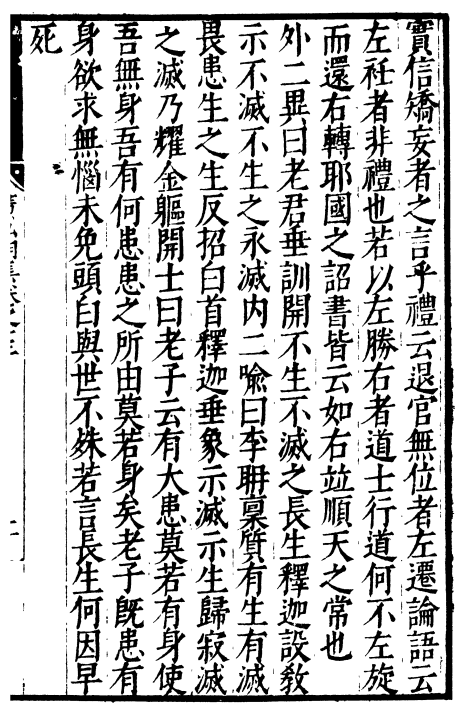 實信矯妄者之言乎禮云退官無位者左遷論語云
左衽者非禮也若以左勝右者道士行道何不左旋
而還右轉耶國之詔書皆云如右並順天之常也
外二異曰老君垂訓開不生不滅之長生釋迦設教
示不滅不生之永滅内二喻曰李耼稟質有生有滅
畏患生之生反招白首釋迦垂象示滅示生歸寂滅
之滅乃耀金軀開士曰老子云有大患莫若有身使
吾無身吾有何患患之所由莫若身矣老子既患有
身欲求無惱未免頭白與世不殊若言長生何因早
死